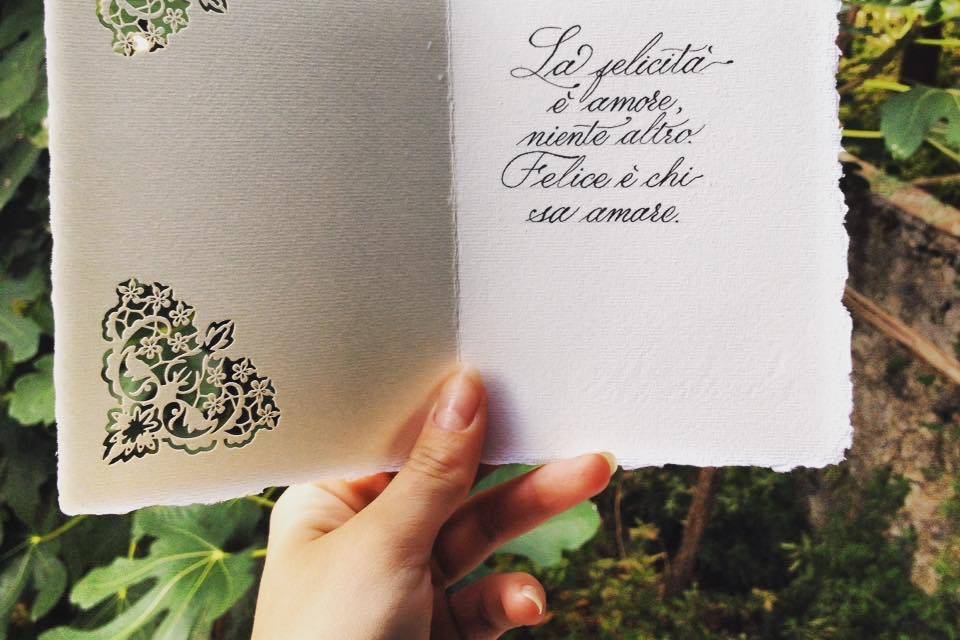 La felicità
è amore,
niente altro.
Felice è chi
sa amare.